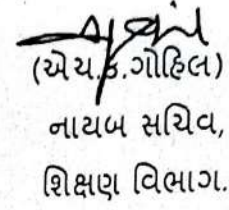 (એચ.કે.ગોહિલ)
નાયબ સચિવ,
શિક્ષણ વિભાગ.